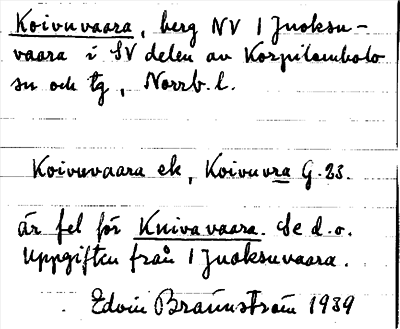 Koivuvaara, berg NV 1 Juoksu-
vaara i SV delen av Korpilombolo
sn och tg, Norrb. l.
Koivuvaara ek, Koivuvra G. 23.
är fel för Knivavaara. Se d. o.
Uppgiften från 1 Juoksuvaara.
Edvin Brännström 1939